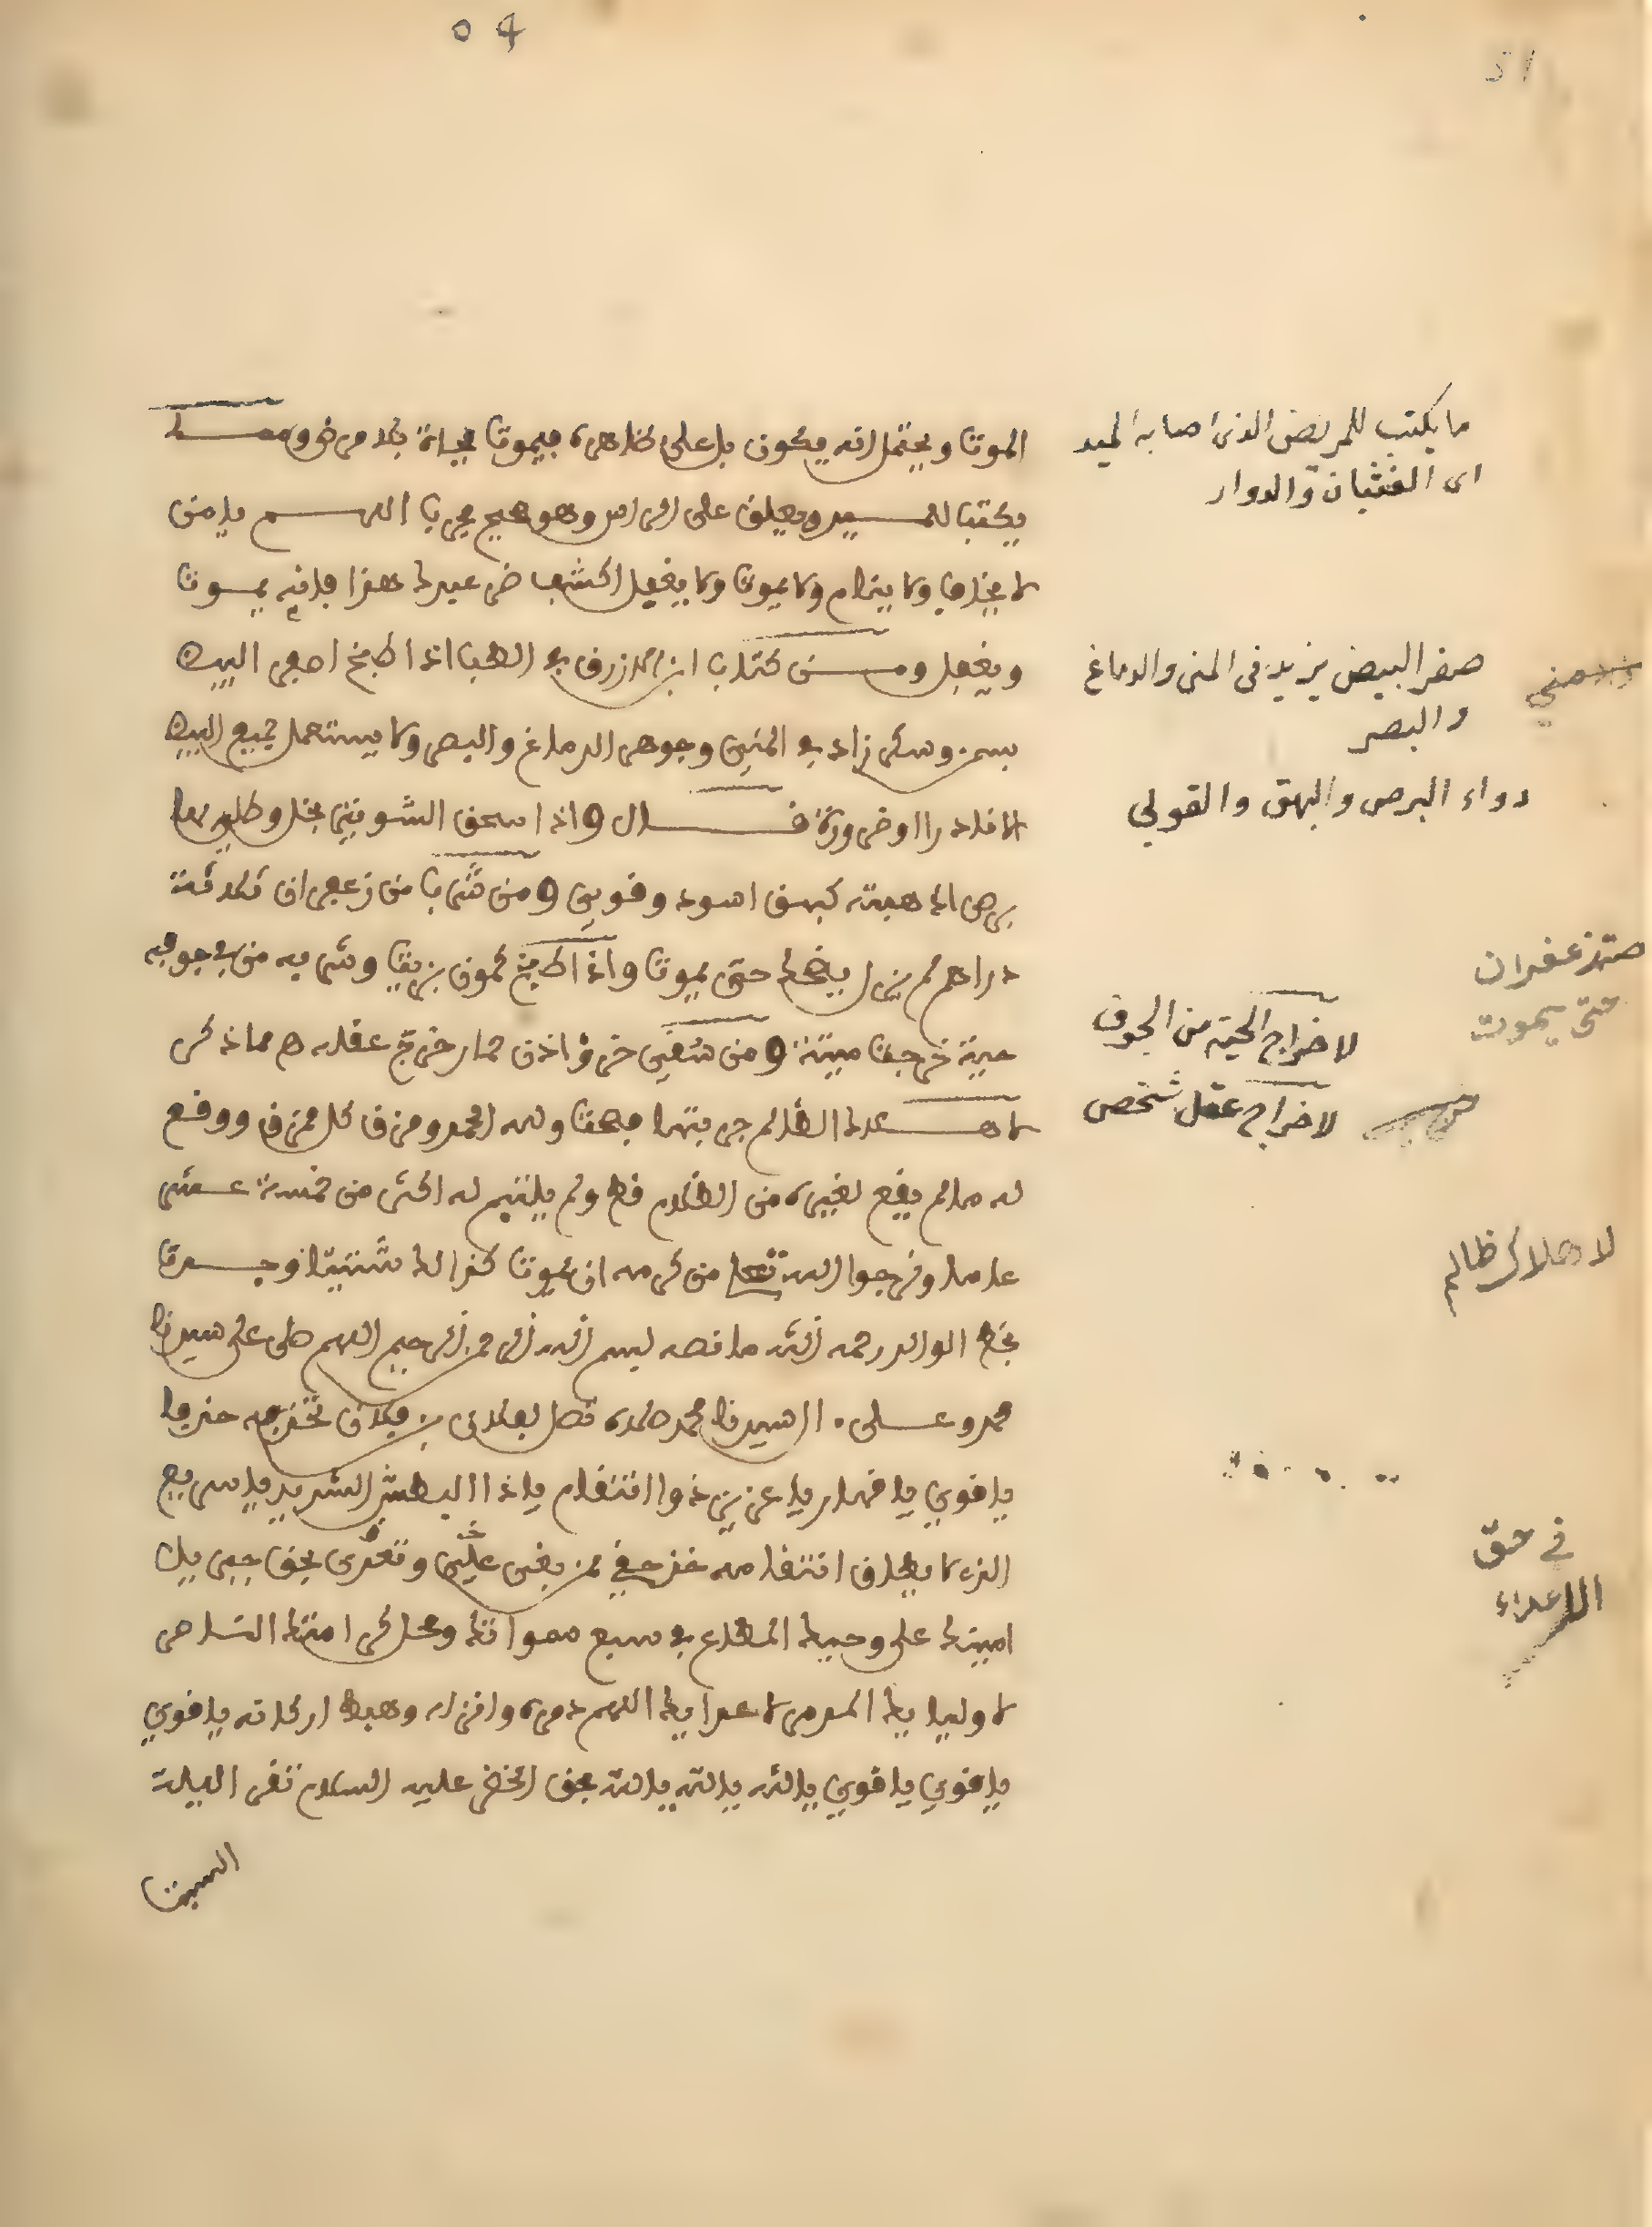 04
51
الموت ويحتمل انه يكون بل على ظاهره فيموت فجاة بلا مرض ومما
يكتب للميد ويعلق على الراس وهو صحيح مجرب اللهم يا من
لا يخاف ولا ينام ولا يموت ولا يغفل اكشف ضر عبدك هذا فانه يموت
ويغفل ومن كتاب ابن ازرق في الطب اذا طبخ اصفر البيض
بسمن وسكر زاد في المني وجوهر الدماغ والبصر ولا يستعمل جميع البيض
الا نادرا او ضرورة قال واذا سحق الشونيز بخل وطلي بها
برص اذهبته كبهق اسود وقوبى ومن شرب من زعفران ثلاثة
دراهم لم يزل يضحك حتى يموت واذا طبخ كمون بزيت وشربه من في جوفه
حية خرجت ميتة ومن سقي خرؤ اذن حمار خرج عقله هـ مما ذكر
لاهلاك الظالم جربتها فصحت ولله الحمد ومزق كل ممزق ووقع
له ما لم يقع لغيره من الظلام قط ولم يلتئم له اكثر من خمسة عشر
عاما ونرجوا الله تعالى من كرمه ان يموت كذالك شتيتا وجدت
بخط الوالد رحمه الله ما نصه بسم الله الرحمن الرحيم اللهم صل على سيدنا
محمد وعلى ءال سيدنا محمد صلاة تصل بفلان بن فلان تخزيه حزيا
يا قوي يا قهار يا عزيز ذوا انتقام يا ذا البطش الشديد يا سريع
الذي لا يطاق انتقامه خذ حقي ممن بغى علي وتعدى بحق جبريل
امينك على وحيك المطاع في سبع سمواتك وعسكر امتك الناصر
لاوليايك المدمر لاعدايك اللهم دمره وانزل وهبط اركانه يا قوي
يا قوي يا قوي يا الله يا الله يا الله بحق الخضر عليه السلام تقرا ليلة
السبت
ما يكتب للمريض الذى اصابه الميد
اى الغثيان والدوار
صفر البيض يزيد فى المنى والدماغ
والبصر
دواء البرص والبهق والقوبى
زعفران
حتى يموت
لاخراج الحية من الجوف
لاخراج عقل شخص
لاهلاك ظالم
في حق
الاعداء